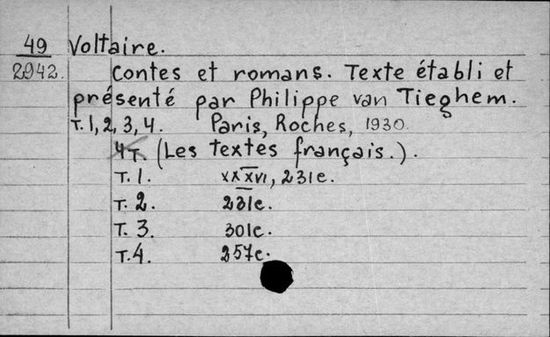 49 Voltaire.
2942. Contes et romans. Texte établi et
présenté par Philippe van Tieghem.
T. 1, 2, 3, 4. Paris, Roches, 1930.
4 T. (Les textes français.).
T. 1. XXXVI, 231c.
T. 2. 231c.
T. 3. 301c.
T. 4. 257c.